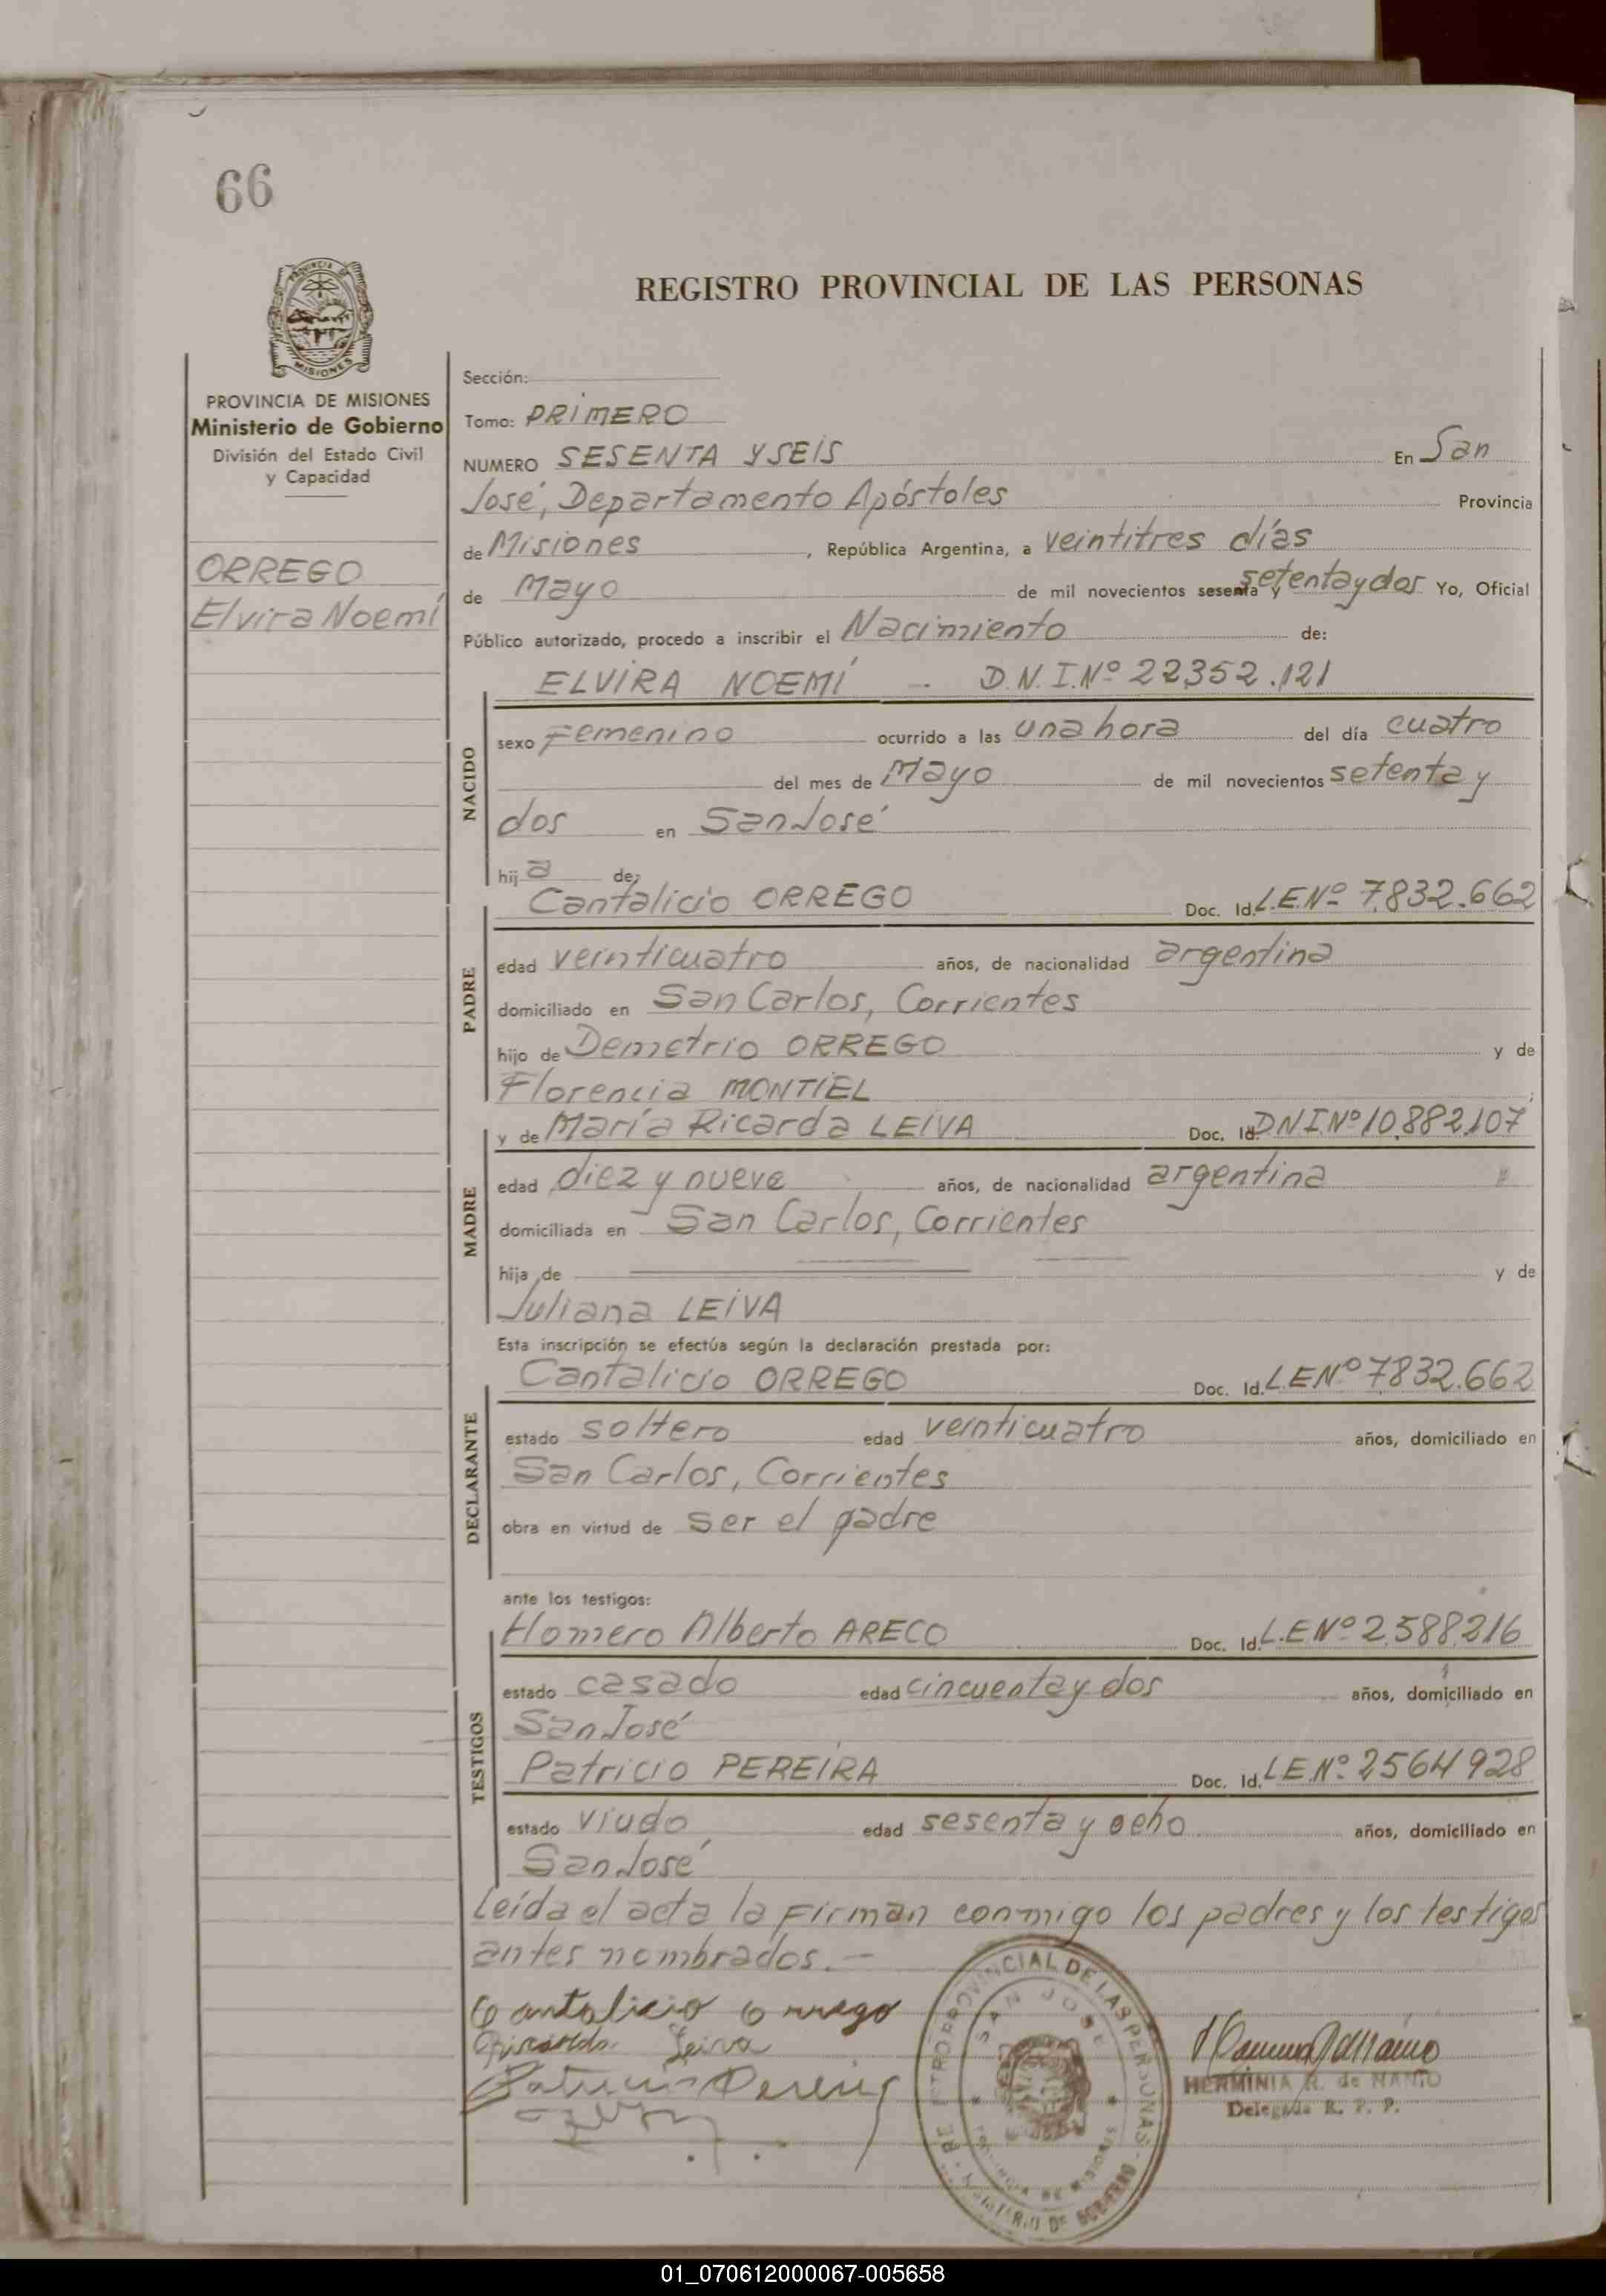 66
REGISTRO PROVINCIAL DE LAS PERSONAS
PROVINCIA DE MISIONES
Ministerio de Gobierno
División del Estado Civil
y Capacidad
ORREGO
Elvira Noemí
Sección:
Tomo: PRIMERO
NUMERO SESENTA Y SEIS En San
José, Departamento Apóstoles Provincia
de Misiones, República Argentina, a veintitres días
de Mayo de mil novecientos sesenta y setenta y dos Yo, Oficial
Público autorizado, procedo a inscribir el Nacimiento de:
ELVIRA NOEMÍ - D.N.I.Nº 22352.121
NACIDO
sexo Femenino ocurrido a las una hora del día cuatro
del mes de Mayo de mil novecientos setenta y
dos en San José
hija de;
Cantalicio ORREGO Doc. Id. L.E.Nº 7.832.662
PADRE
edad veinticuatro años, de nacionalidad argentina
domiciliado en San Carlos, Corrientes
hijo de Demetrio ORREGO y de
Florencia MONTIEL
y de María Ricarda LEIVA Doc. Id. DNI.Nº 10.882.107
MADRE
edad diez y nueve años, de nacionalidad argentina
domiciliada en San Carlos, Corrientes
hija de y de
Juliana LEIVA
Esta inscripción se efectúa según la declaración prestada por:
Cantalicio ORREGO Doc. Id. L.E.Nº 7.832.662
DECLARANTE
estado soltero edad veinticuatro años, domiciliado en
San Carlos, Corrientes
obra en virtud de ser el padre
ante los testigos:
Homero Alberto ARECO Doc. Id. L.E.Nº 2.588.216
TESTIGOS
estado casado edad cincuenta y dos años, domiciliado en
San José
Patricio PEREIRA Doc. Id. L.E.Nº 2564928
estado viudo edad sesenta y ocho años, domiciliado en
San José
Leída el acta la firman conmigo los padres y los testigos
antes nombrados.-
Cantalicio Orrego
Leiva
Patricio Pereira
REGISTRO PROVINCIAL DE LAS PERSONAS
SAN JOSE
PROVINCIA DE MISIONES
MINISTERIO DE GOBIERNO
HERMINIA R. de NANIO
Delegada R. P. P.
01_070612000067-005658